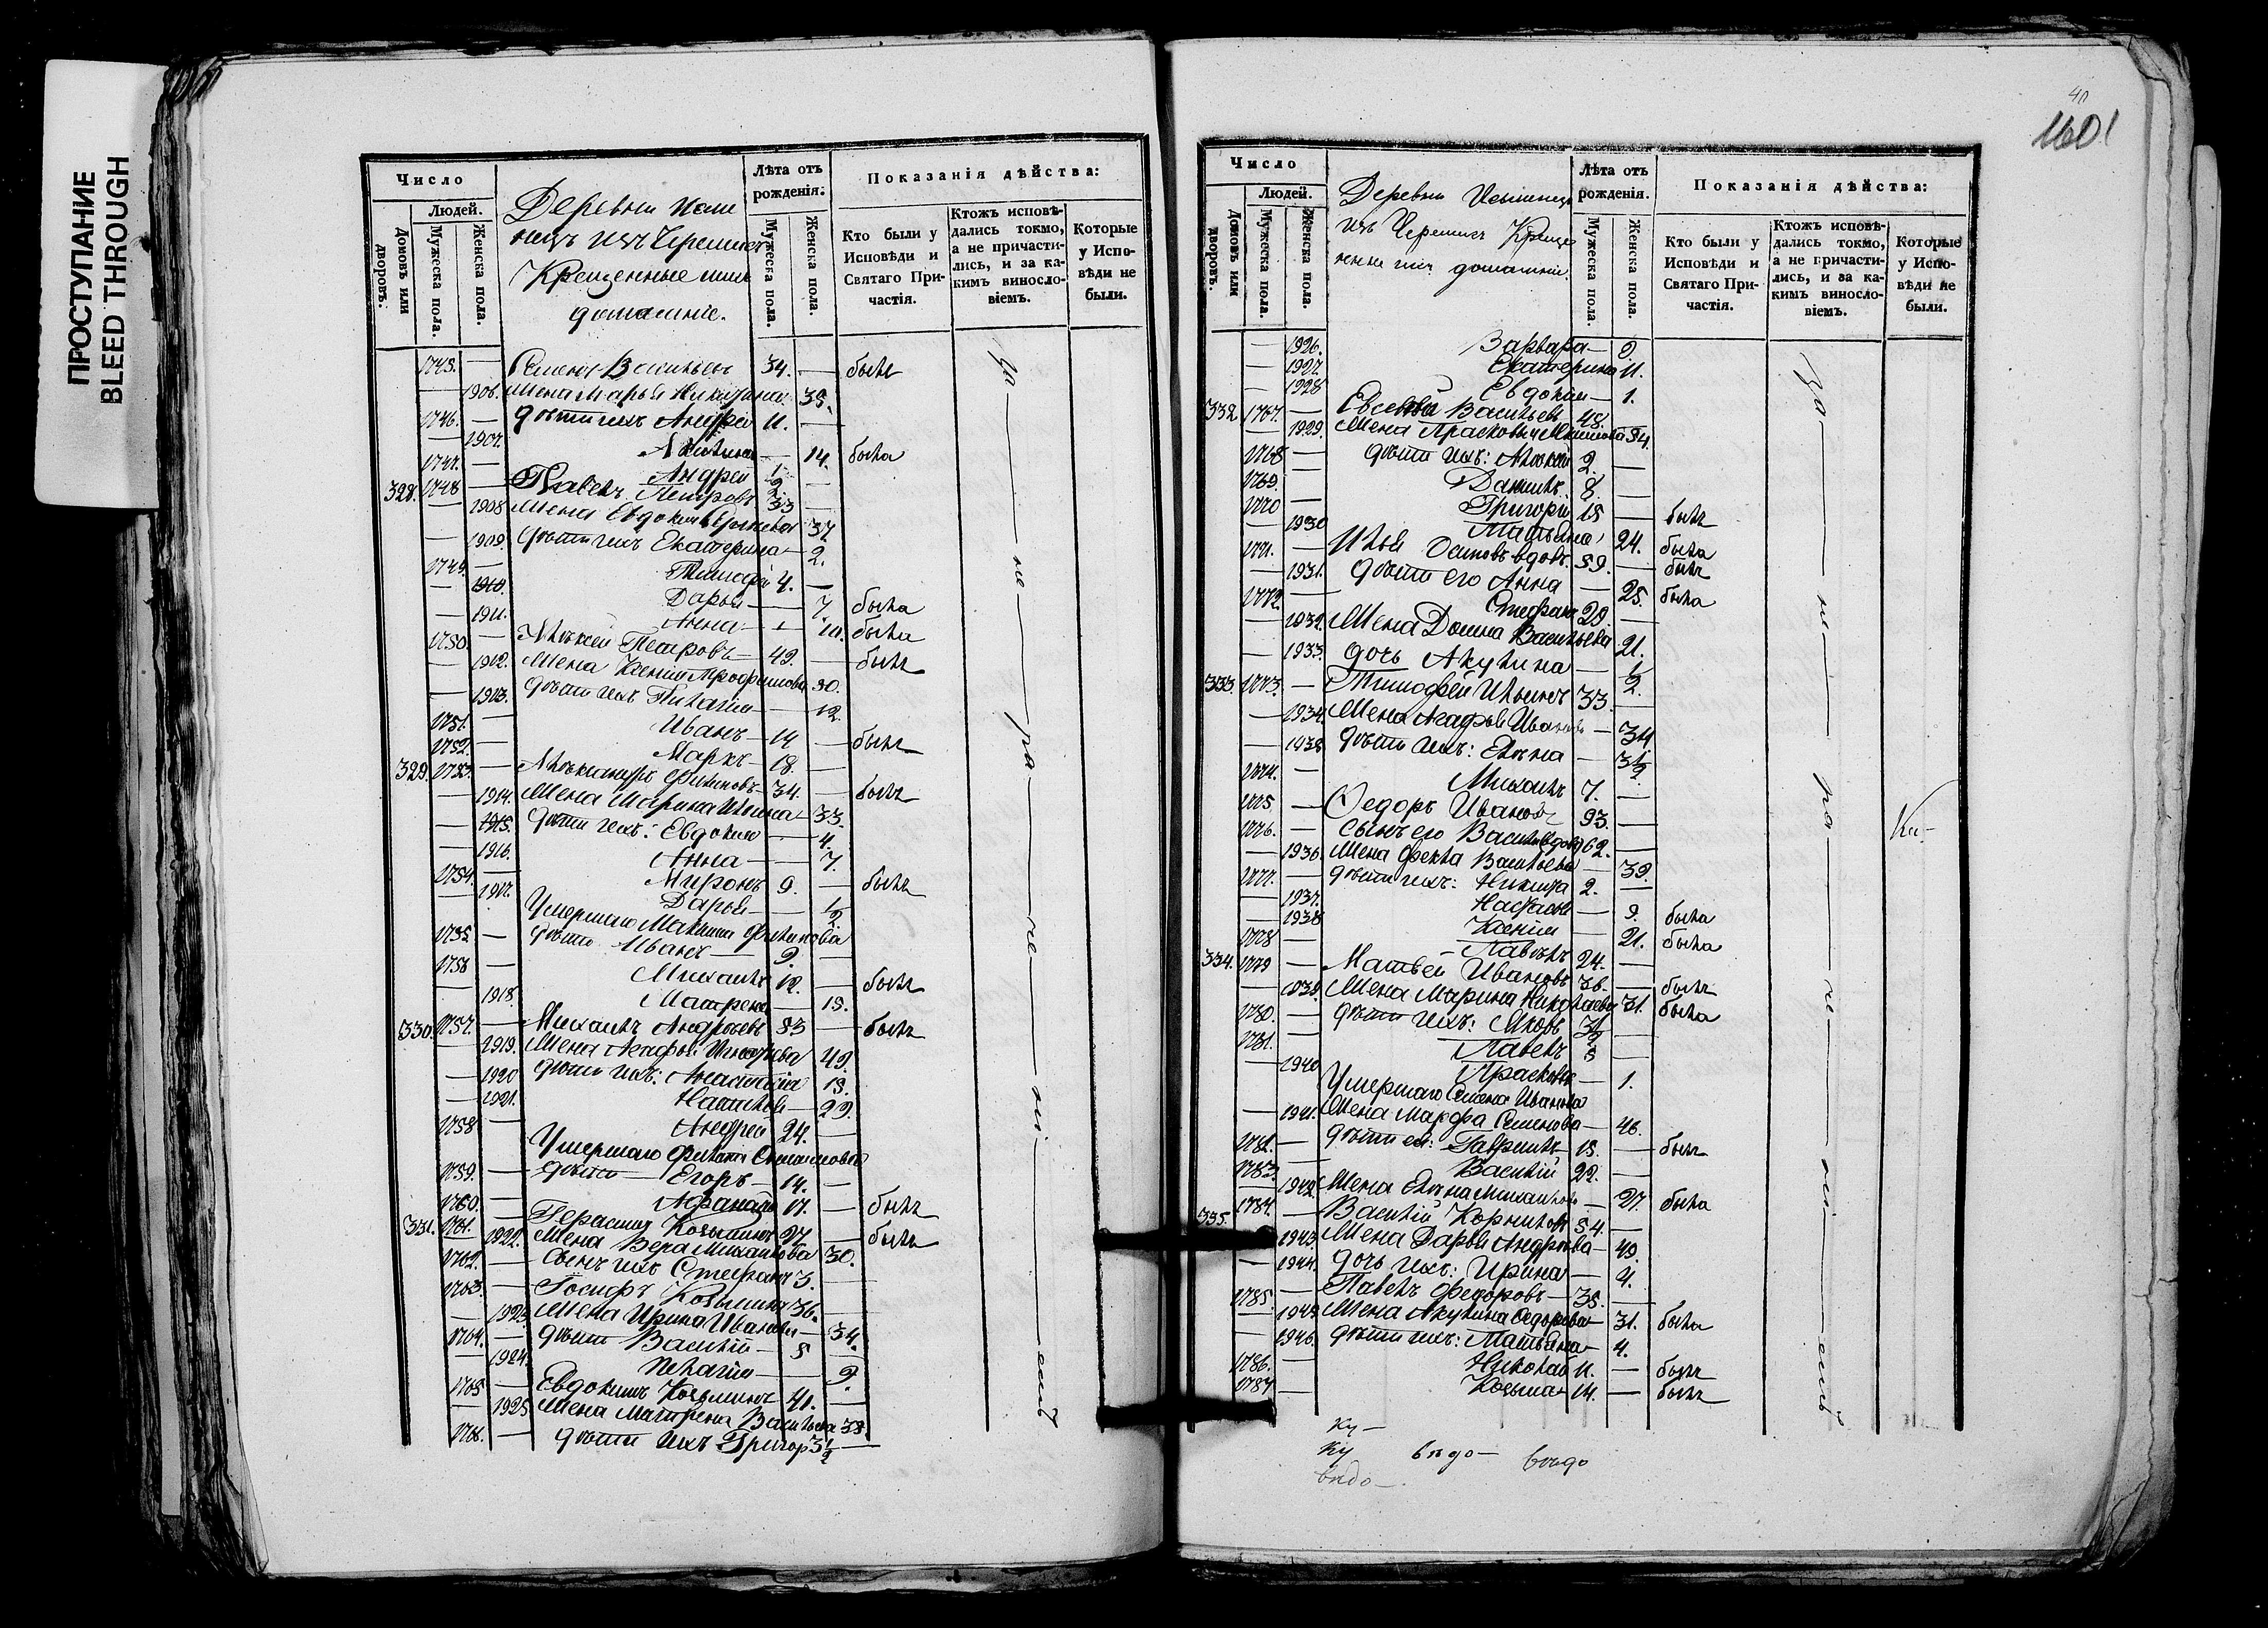 ПРОСТУПАНИЕ
BLEED THROUGH
Число
Людей.
Домовъ или дворовъ.
Мужеска пола.
Женска пола.
Крещенные
домашніе.
Лѣта отъ рожденія.
Мужеска пола.
Женска пола.
Показанія дѣйства:
Кто были у Исповѣди и Святаго Причастія.
Ктожъ исповѣдались токмо, а не причастились, и за какимъ винословіемъ.
Которые у Исповѣди не были.
1745. — Семенъ Васильевъ 34. — былъ
— 1906. Жена Марья Никитина 35.
1746. — дѣти ихъ Андрей 11. —
— 1907. Акилина — 14. была
1747. — Андрей 1/2 —
328. 1748 — Павелъ Петровъ 33 —
— 1908 Жена Евдокия 37
— 1909. дѣти ихъ Екатерина — 2.
1749. — Тимофей 4. —
— 1910. Дарья — 7. была
— 1911. Анна — 10. была
1750. — Алексей Петровъ — 49. — былъ
— 1912. Жена Ксения Трофимова 50.
— 1913. дѣти ихъ Пелагия — 12.
1751. — Иванъ — 14 — былъ
1752. — Маркъ — 18. —
329. 1753. — Александръ Филиповъ — 34. — былъ
— 1914. Жена Марина Ильина — 33.
— 1915. дѣти ихъ: Евдокия — 4.
— 1916. Анна — 7.
1754. — Миронъ 9. — былъ
— 1917. Дарья — 1/2
Умершаго Филипова
1755. — дѣти Иванъ — 9.
1756 — Михаилъ 12. — былъ
— 1918. Матрена — 15.
330. 1757. — Михаилъ Андреевъ 53 — былъ
— 1919. Жена Агафья 49.
— 1920 дѣти ихъ: Анастасия 15.
— 1921. Наталья — 22.
1758 — Андрей 24. —
Умершаго
1759. — дѣти — Егоръ — 14. —
1760. — 17. — былъ
331. 1761. — Герасимъ Козьминъ 27 — былъ
1922. Жена Вера Михайлова 30.
1762. — Сынъ ихъ Стефанъ 3. —
1763. — Іосифъ Козьминъ 36. —
— 1923. Жена Ирина Иванова — 34.
1764. — дѣти Василій — 5
— 1924. Пелагия — 9.
1765 — Евдокимъ Козьминъ 41. —
— 1925 Жена Матрена Васильева 38.
1766. — дѣти ихъ Григор 3 1/2 —
за — не — ра — че — ні — емъ
1601
Число
Людей.
Домовъ или дворовъ.
Мужеска пола.
Женска пола.
домашніи.
Лѣта отъ рожденія.
Мужеска пола.
Женска пола.
Показанія дѣйства:
Кто были у Исповѣди и Святаго Причастія.
Ктожъ исповѣдались токмо, а не причастились, и за какимъ винословіемъ.
Которые у Исповѣди не были.
— 1926. Варвара — 9.
— 1927. Екатерина 11.
— 1928 Евдокия — 1.
332 1767. — Евсевий Васильевъ 48.
— 1929. Жена Прасковья 54.
1768 — дѣти ихъ: Алексей 2. —
1769. Данилъ 8. —
1770 — Григорій 15 — былъ
— 1930 Татьяна 24. была
1771. — Илья Осиповъ вдовъ 59. — былъ
— 1931. дѣти его Анна — 25. была
1772. — Стефанъ 20. —
— 1932. Жена Домна Васильева 21.
— 1933. дочь Акулина — 1/2.
333 1773. — Тимофей Ильинъ 33. —
— 1934. Жена Агафья Иванова — 34
— 1935 дѣти ихъ: Елена — 3 1/2.
1774. — Михаилъ 7. —
1775 — Федоръ Ивановъ 93. —
1776. — сынъ его Василій 62. —
— 1936. Жена Фекла Васильева — 39.
1777. — дѣти ихъ: Никита 2. —
— 1937. — 9. была
— 1938 Ксения — 21. была
1778 — Павелъ 24. —
334. 1779 — Матвей Ивановъ 36. — былъ
— 1939. Жена Марина Николаева 31. была
1780. — дѣти ихъ: Яковъ 3 1/2 —
1781. — Павелъ 5 —
— 1940 Прасковья — 1.
Умершаго Семена Иванова
— 1941. Жена Марфа Семенова — 46.
— дѣти ея: Гаврилъ 15. — былъ
1783. — Василій 22. —
— 1942. Жена Елена Михайлова — 27. была
335. 1784. — Василій Корниловъ 54. —
1943. Жена Дарья Андреева — 49.
— 1944. дочь ихъ: Ирина — 4.
1785. — Павелъ Федоровъ — 35. —
— 1945 Жена Акулина Федорова — 31. была
— 1946. дѣти ихъ: Татьяна — 4.
1786. — Николай 11. — былъ
1787 — Козьма 14. — былъ
за — не — ра — че — ні — емъ
ку —
ку